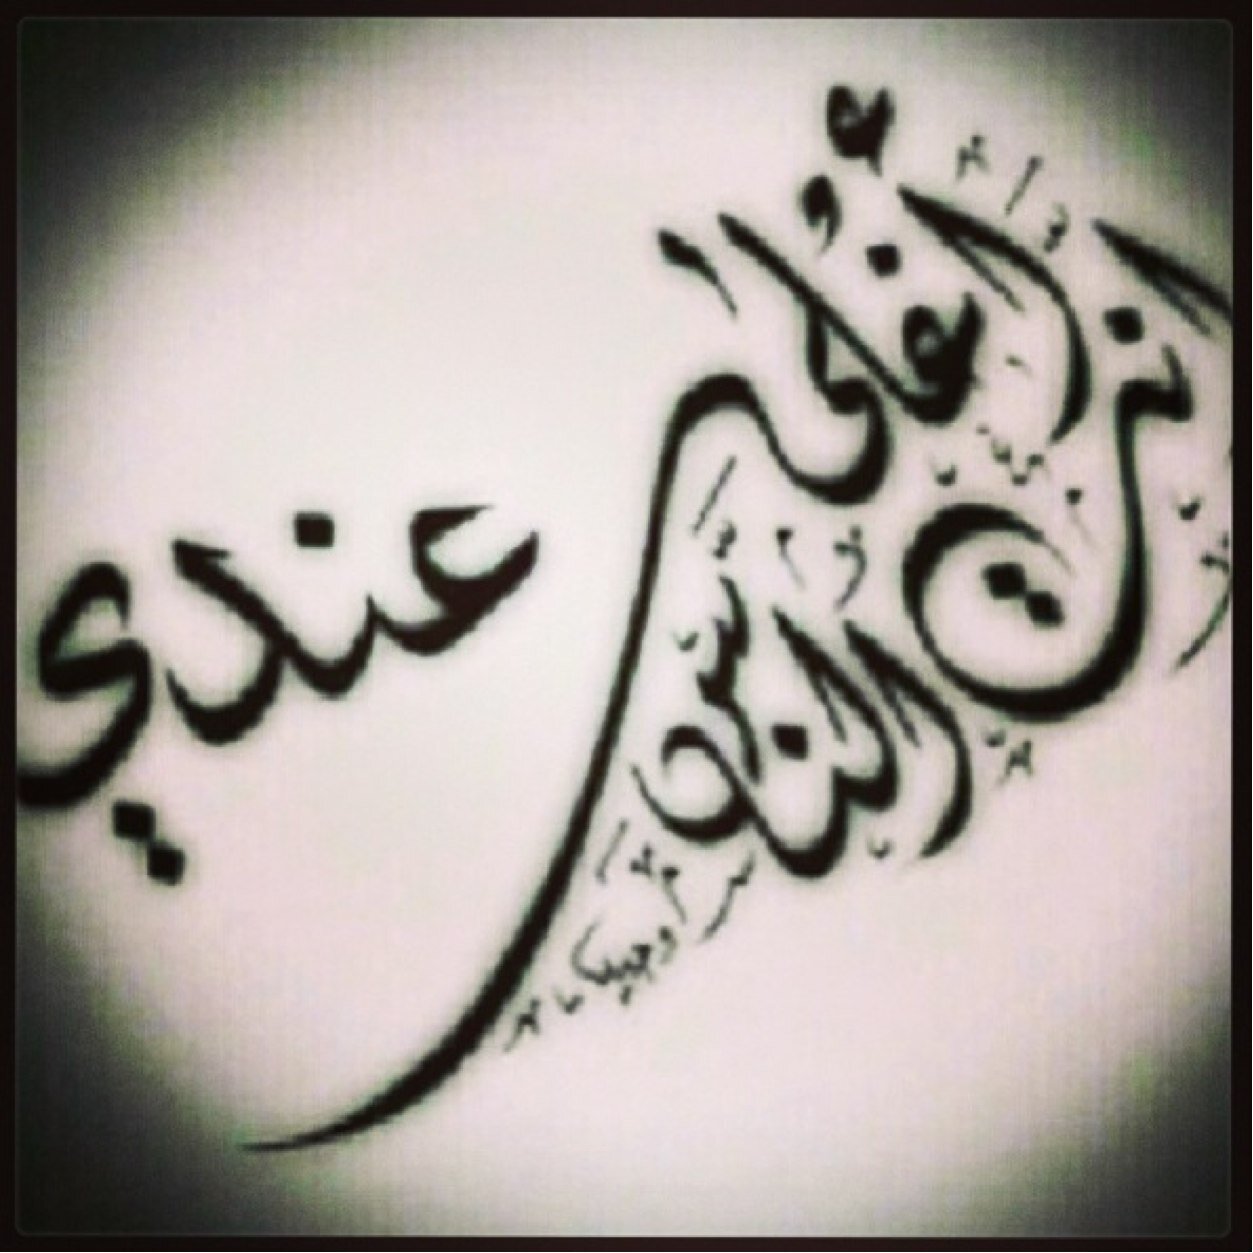 أنت أغلى الناس عندي